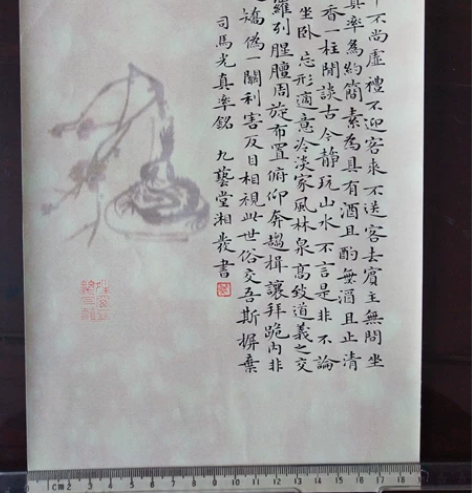 不尚虛禮不迎客來不送客去賓主無間坐
真率為約簡素為具有酒且酌無酒且止清
香一柱閒談古今靜玩山水不言是非不論
坐卧忘形適意冷淡家風林泉高致道義之交
羅列腥膻周旋布置俯仰奔趨揖讓拜跪內非
矯偽一關利害反目相視此世俗交吾斯摒棄
司馬光真率銘 九藝堂湘書
CM 2 3 4 5 6 7 8 9 10 11 12 13 14 15 16 17 18